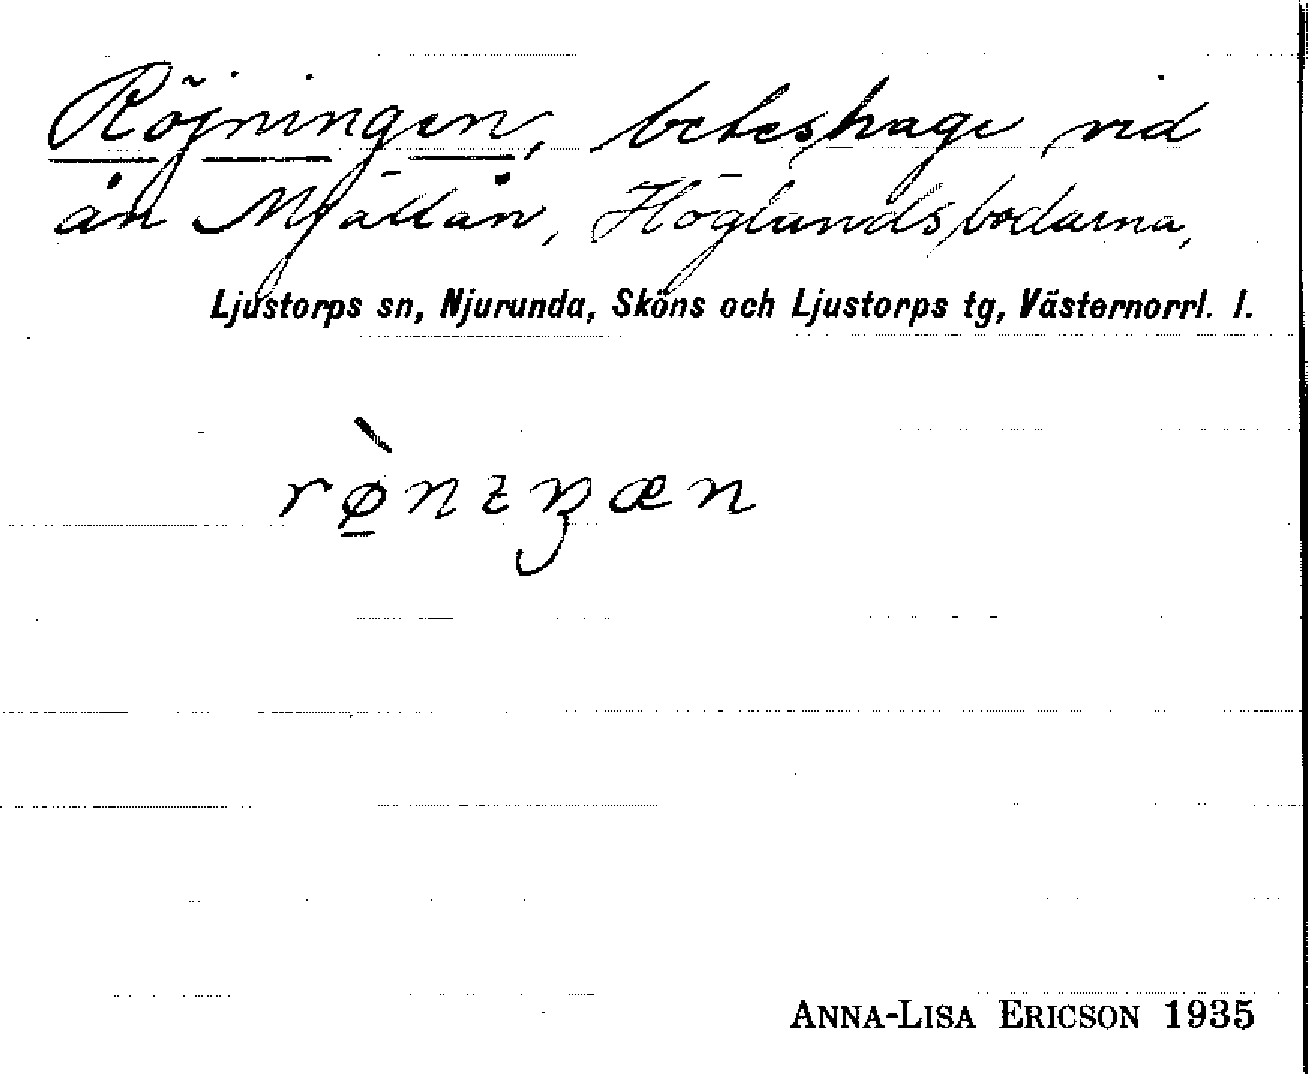 Röjningen, beteshage vid
ån Mjällån, Höglundsbodarna,
Ljustorps sn, Njurunda, Sköns och Ljustorps tg, Västernorrl. l.
rø̠̀nɪŋæn
ANNA-LISA ERICSON 1935